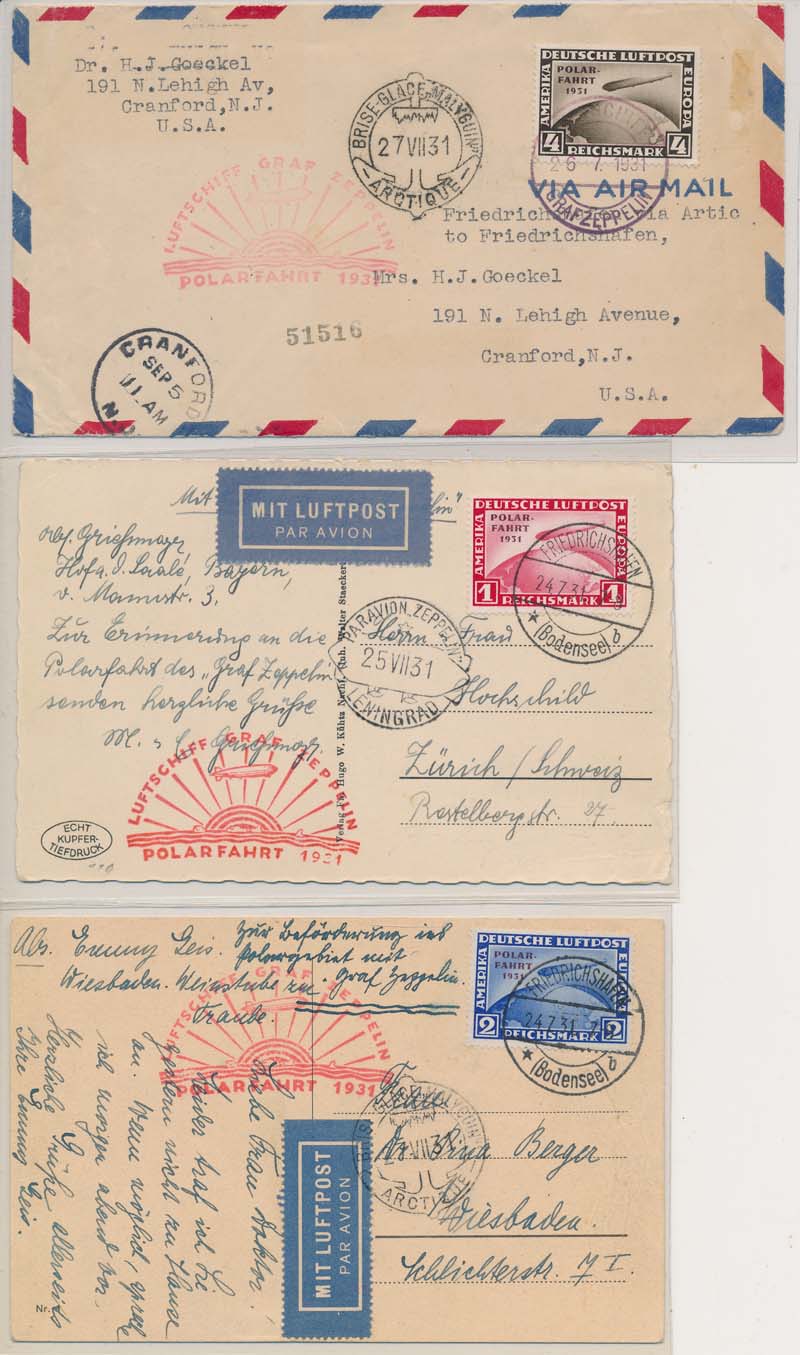 Dr. H.J.Goeckel
191 N.Lehigh Av,
Cranford,N.J.
U.S.A.
BRISE-GLACE „MALYGUIN"
27 VII 31
ARCTIQUE
DEUTSCHE LUFTPOST
AMERIKA
EUROPA
POLAR-
FAHRT
1931
4 4
REICHSMARK
26. 7. 1931
GRAF ZEPPELIN
VIA AIR MAIL
LUFTSCHIFF GRAF ZEPPELIN
POLARFAHRT 1931
via Artic
to Friedrichshafen,
Mrs. H.J.Goeckel
191 N. Lehigh Avenue,
Cranford,N.J.
U.S.A.
51516
CRANFORD
SEP 5
11 AM
N.J.
Mit
MIT LUFTPOST
PAR AVION
DEUTSCHE LUFTPOST
AMERIKA
EUROPA
POLAR-
FAHRT
1931
1 1
REICHSMARK
FRIEDRICHSHAFEN
24.7.31
(Bodensee) b
Hof a. d. Saale, Bayern,
Zur Erinnerung an die
Polarfahrt des „Graf Zeppelin"
senden herzliche Grüße
PAR AVION „ZEPPELIN"
25 VII 31
LENINGRAD
Herrn Frau
Hochschild
Zürich / Schweiz
27.
LUFTSCHIFF GRAF ZEPPELIN
POLARFAHRT 1931
ECHT
KUPFER-
TIEFDRUCK
Hugo W. Kühtz Nachf. Inh. Walter
Abs. Emmy Geis.
Wiesbaden. Weinstube zur
Traube.
Zur Beförderung ins
Polargebiet mit
Graf Zeppelin.
DEUTSCHE LUFTPOST
AMERIKA
EUROPA
POLAR-
FAHRT
1931
2 2
REICHSMARK
FRIEDRICHSHAFEN
24.7.31
(Bodensee) b
LUFTSCHIFF GRAF ZEPPELIN
POLARFAHRT 1931
MALYGUIN"
VII 31
ARCTIQUE
Frau
Dr Berger
Wiesbaden.
Schlichterstr. 7 I.
MIT LUFTPOST
PAR AVION
Liebe Frau Doktor!
Leider traf ich Sie
gestern nicht zu Hause
an. Wenn möglich,
ich morgen abend vor.
Herzliche Grüße allerseits
Ihre Emmy Geis.
Nr.